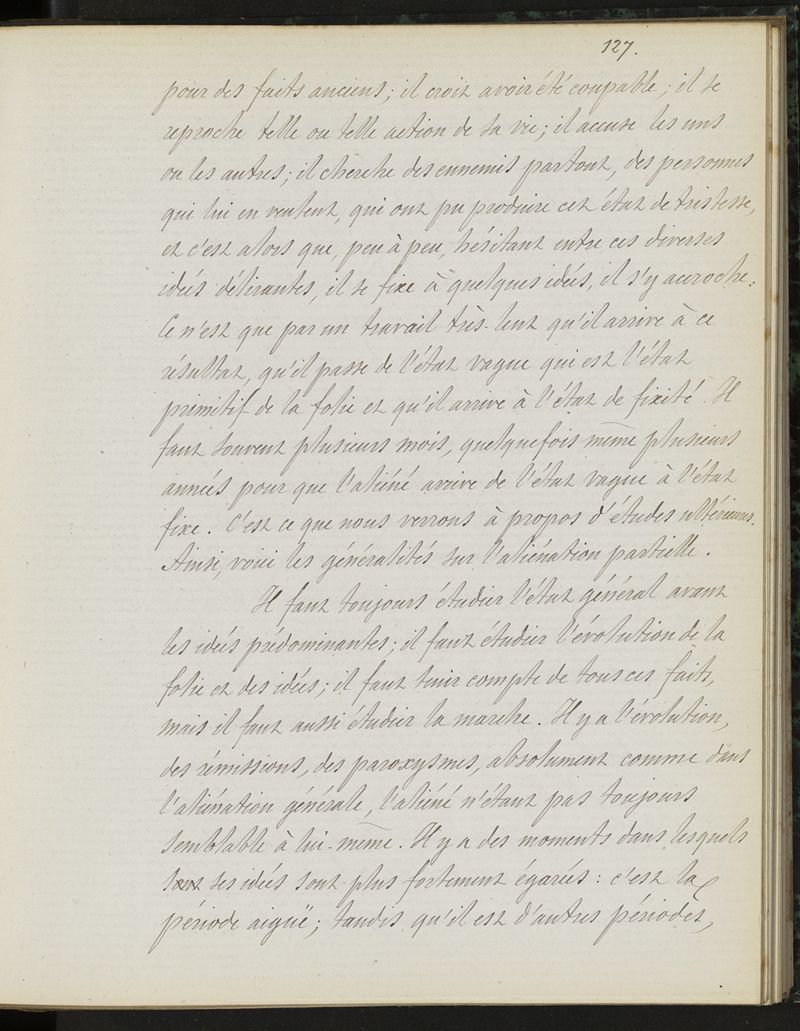 127.
pour des faits anciens; il croit avoir été coupable; il se
reproche telle ou telle action de sa vie; il accuse les uns
ou les autres; il cherche des ennemis partout, des personnes
qui lui en veulent, qui ont pu produire cet état de tristesse,
et c'est alors que, peu à peu, hésitant entre ces diverses
idées délirantes, il se fixe à quelques idées, il s'y accroche.
Ce n'est que par un travail très-lent qu'il arrive à ce
résultat, qu'il passe de l'état vague qui est l'état
primitif de la folie et qu'il arrive à l'état de fixité. Il
faut souvent plusieurs mois, quelquefois même plusieurs
années pour que l'aliéné arrive de l'état vague à l'état
fixe. C'est ce que nous verrons à propos d'études ultérieures.
Ainsi, voici les généralités sur l'aliénation partielle.
Il faut toujours étudier l'état général avant
les idées prédominantes; il faut étudier l'évolution de la
folie et des idées; il faut tenir compte de tous ces faits,
mais il faut aussi étudier la marche. Il y a l'évolution,
des rémissions, des paroxysmes, absolument comme dans
l'aliénation générale, l'aliéné n'étant pas toujours
semblable à lui-même. Il y a des moments dans lesquels
ses idées sont plus fortement égarées: c'est la
période aiguë; tandis qu'il est d'autres périodes,